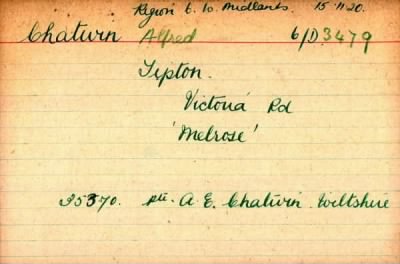 Region 6. W. Midlands. 15.11.20.
Chatwin Alfred 6/D3479
Tipton.
Victoria Rd
'Melrose'
35370. pte. A. E. Chatwin. Wiltshire